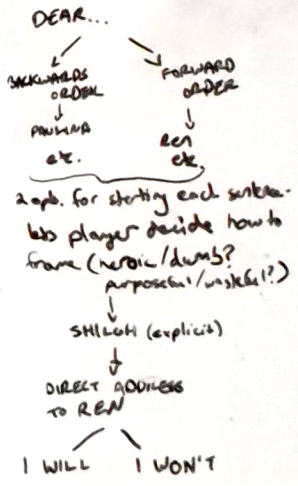 DEAR...
BACKWARDS ORDER
FORWARD ORDER
PAULINA etc.
Ren etc.
2 opt. for starting each sentence.
lets player decide how to
frame (heroic/dumb?
purposeful/wasteful?)
SHILOH (explicit)
DIRECT ADDRESS
TO REN
I WILL
I WON'T